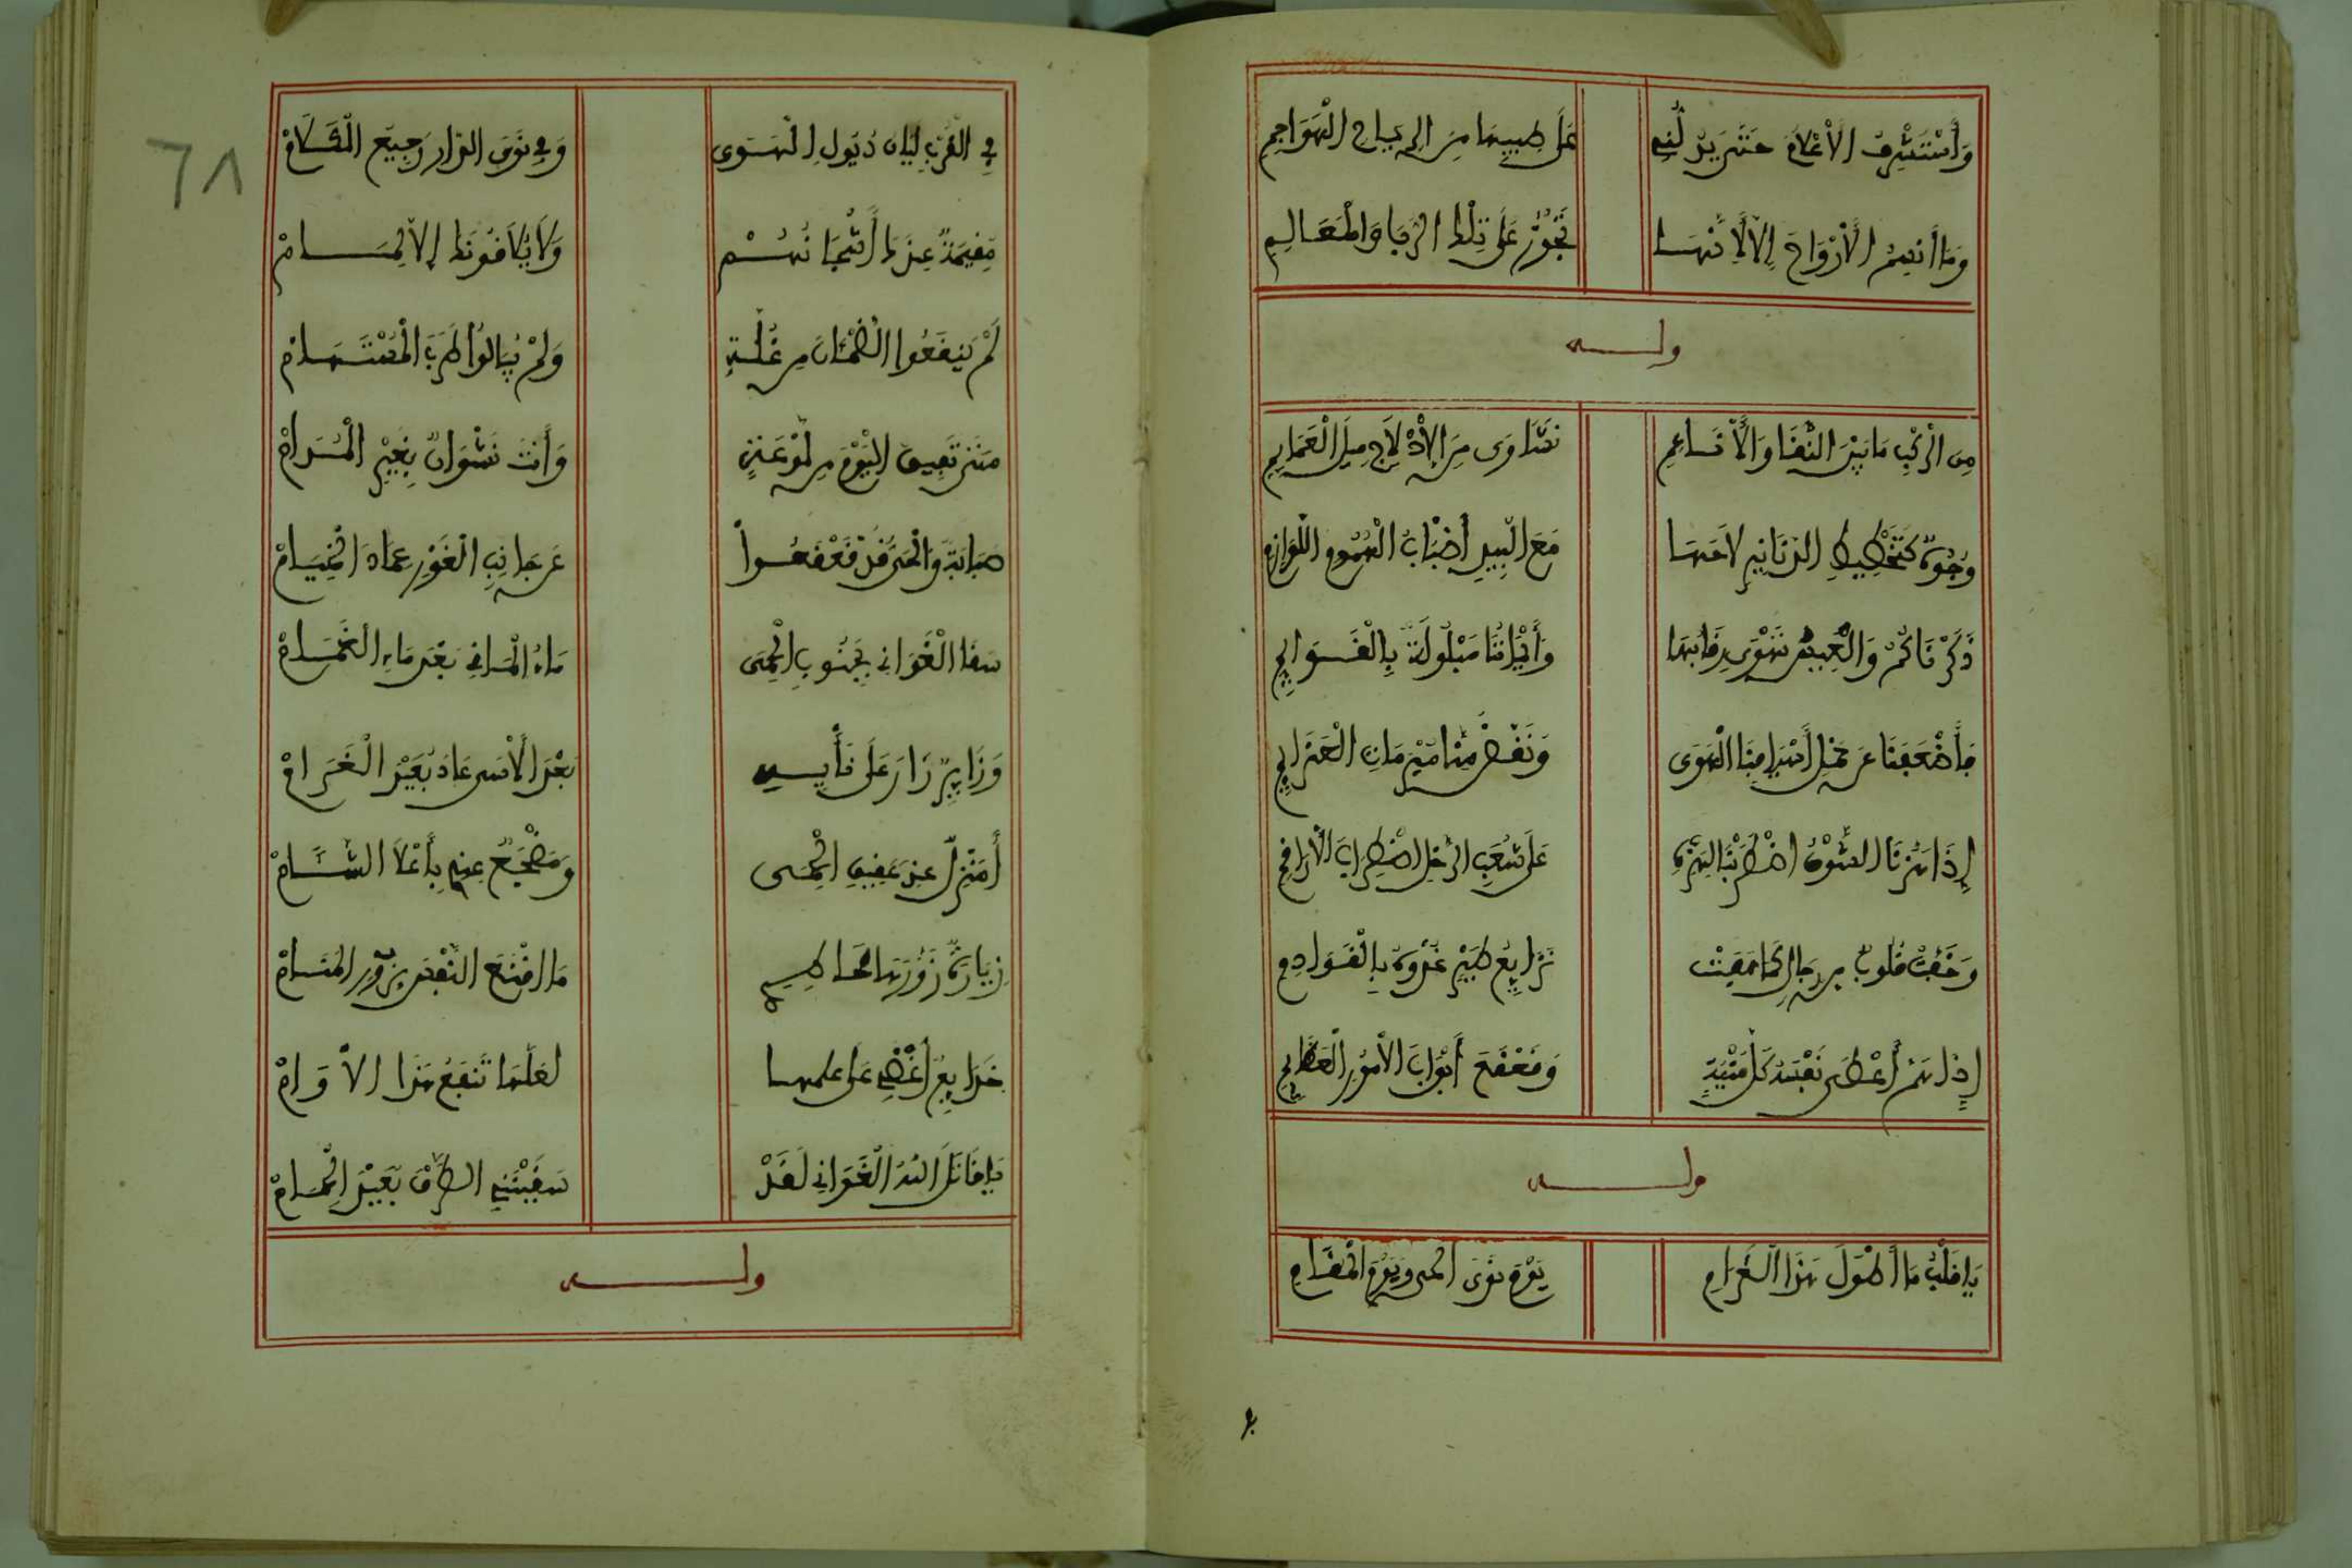 وَأَسْتَشْرِفُ الْأَعْلَامَ حَتَّى يَدُلَّنِي عَلَى طِيبِهَا مَرُّ الرِّيَاحِ الْهَوَاجِمِ
وَمَا أَنْسِمُ الْأَرْوَاحَ إِلَّا لِأَنَّهَا تَجُوزُ عَلَى تِلْكَ الرُّبَا وَالْمَعَالِمِ
وله
مِنَ الرَّكْبِ مَا بَيْنَ النَّقَا وَالْأَنَاعِمِ نَشَاوَى مِنَ الْإِدْلَاجِ مِيلَ الْعَمَائِمِ
وُجُوهٌ كَتَخْطِيطِ الدَّنَانِيرِ لَاحَهَا مَعَ الْبِيدِ أَضْبَابُ الْهُمُومِ اللَّوَازِمِ
ذَكَرْنَاكُمُ وَالْعِيسُ تَهْوِي رِقَابُهَا وَأَكْتَافُنَا مَبْلُولَةٌ بِالْقَوَائِمِ
فَأَضْعَفَنَا عَنْ حَمْلِ أَسْيَافِنَا الْهَوَى وَنَفَّضَ مِنَّا مَيْرَمَاتِ الْعَزَائِمِ
إِذَا هَزَّنَا الشَّوْقُ اضْطَرَبْنَا لِهَزِّهِ عَلَى شُعَبِ الرَّحْلِ اضْطِرَابَ الْأَرَاقِمِ
وَخَفَّتْ قُلُوبٌ مِنْ رِجَالٍ كَمَا هَفَتْ نَزَائِعُ طَيْرٍ غُدْوَةً بِالْقَوَادِمِ
إِذَا هَمَّ أَعْطَى نَفْسَهُ كُلَّ مُنْيَةٍ وَقَعْقَعَ أَبْوَابَ الْأُمُورِ الْعَظَائِمِ
وله
يَا قَلْبُ مَا أَطْوَلَ هَذَا الْغَرَامِ يَوْمَ نَوَى الْحَيِّ وَيَوْمَ الْمُقَامِ
٦٨
فِي الْقُرْبِ لَيَّانُ دُيُولِ الْهَوَى وَفِي نَوَى الدَّارِ رَجِيعَ السَّقَامْ
مُقِيمَةٌ عِنْدَكَ أَشْجَانُهُمْ وَلَا يُلَاقُونَكَ إِلَّا لِمَامْ
لَمْ يَنْقَعُوا الظَّمْآنَ مِنْ غُلَّةٍ وَلَمْ يُبَالُوا طَرَبَ الْمُسْتَهَامْ
مَتَى تُفِيقُ الْيَوْمَ مِنْ لَوْعَةٍ وَأَنْتَ نَشْوَانٌ بِغَيْرِ الْمُدَامْ
صَبَابَةً وَالْحَيُّ قَدْ قَعْقَعُوا عَنْ جَانِبِ الْغَوْرِ عِمَادَ الْخِيَامْ
سَقَا الْغَوَانِي بِجَنُوبِ الْحِمَى مَاءُ الْمَآقِي بَعْدَ مَاءِ الْغَمَامْ
وَزَائِرٍ زَارَ عَلَى نَأْيِهِ بَعْدَ الْأَسَى عَادَ بَعِيدَ الْغَرَامْ
أَمَنْزِلٌ عِنْدَ عَقِيقِ الْحِمَى وَمَضْجَعٌ عِنْدِي بِأَعْلَا الشَّآمْ
زِيَارَةٌ زَوَّرَهَا خَاطِرِي مَا أَقْنَعَ النَّفْسَ بِزُورِ الْمَنَامْ
خَدَائِعٌ أُغْضِي عَلَى عِلْمِهَا لَعَلَّهَا تَنْقَعُ هَذَا الْأُوَامْ
يَا قَاتَلَ اللَّهُ الْغَوَانِي لَقَدْ سَقَيْنَنِي الطَّرْقَ بُعَيْدَ الْجِمَامْ
وله